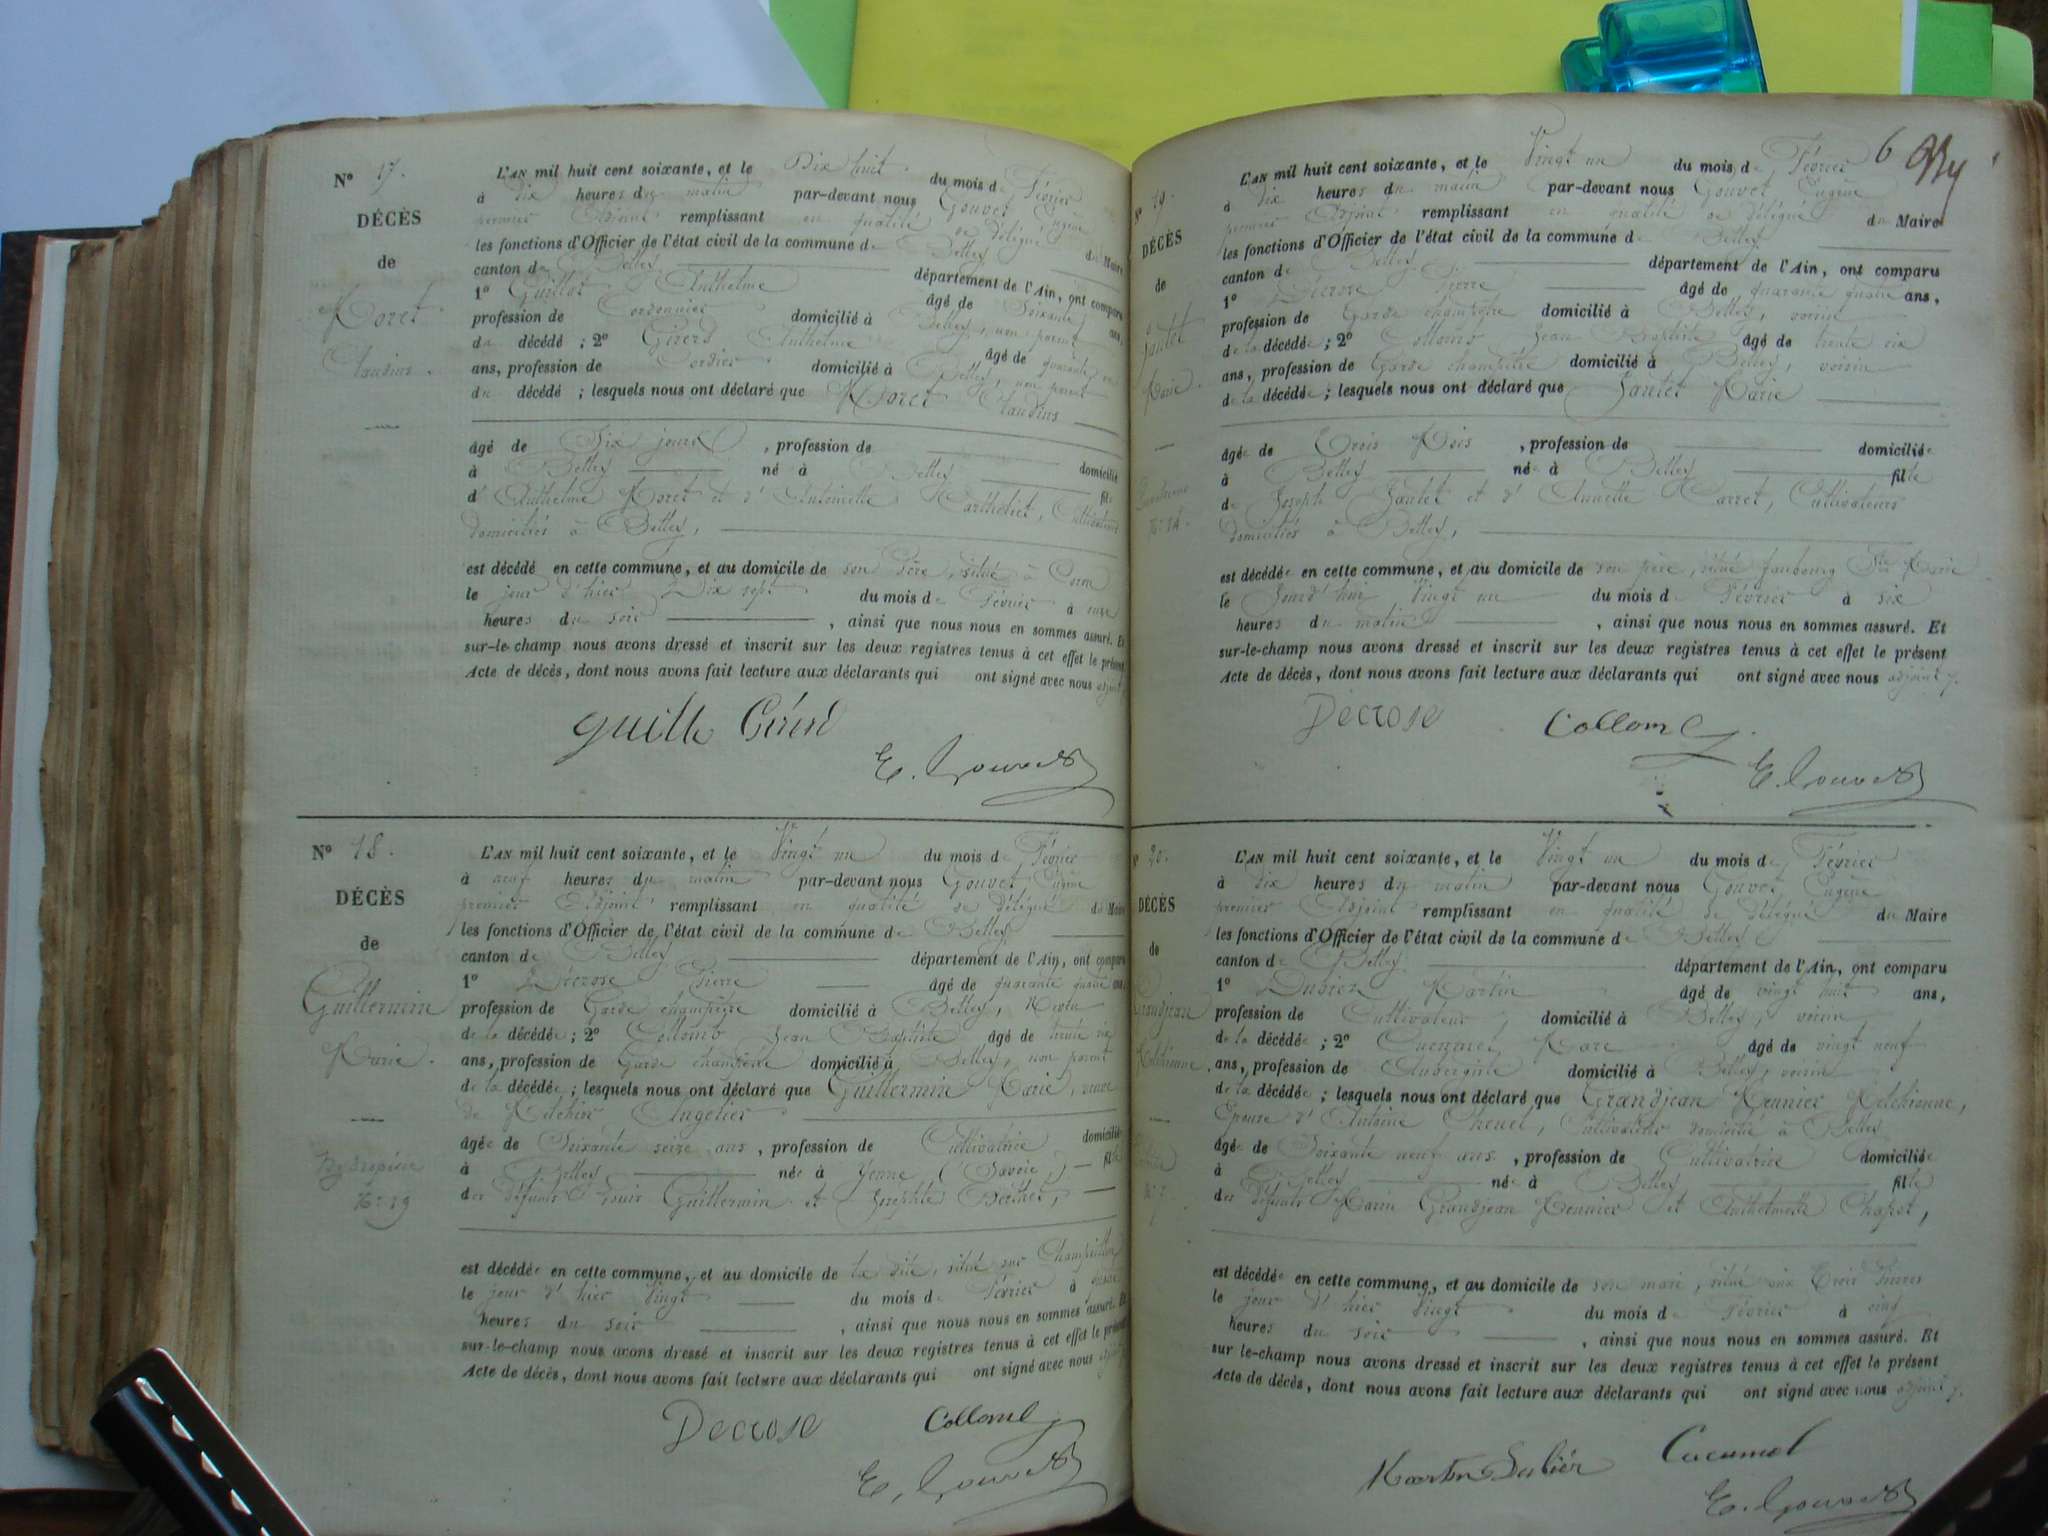 N° 17.
DÉCÈS
de
Moret
Claudius.
L'AN mil huit cent soixante, et le Dix huit du mois de Février
à dix heures du matin par-devant nous Gouvet Eugène
premier Adjoint remplissant en qualité de délégué du Maire
les fonctions d'Officier de l'état civil de la commune de Belley
canton de Belley département de l'Ain, ont comparu
1° Guillot Anthelme âgé de Soixante ans,
profession de Cordonnier domicilié à Belley, non parent
du décédé ; 2° Girerd Anthelme âgé de quarante un
ans, profession de Cordier domicilié à Belley, non parent
du décédé ; lesquels nous ont déclaré que Moret Claudius
âgé de Dix jours, profession de domicilié
à Belley né à Belley fils
d'Anthelme Moret et d'Antoinette Marthelet, Cultivateurs
domiciliés à Belley,
est décédé en cette commune, et au domicile de son Père, situé à Coron
le jour d'hier Dix sept du mois de Février à onze
heures du soir , ainsi que nous nous en sommes assuré. Et
sur-le-champ nous avons dressé et inscrit sur les deux registres tenus à cet effet le présent
Acte de décès, dont nous avons fait lecture aux déclarants qui ont signé avec nous adjoint
E. Gouvet
N° 18.
DÉCÈS
de
Guillermin
Marie.
Hydropisie
N° 19
L'AN mil huit cent soixante, et le Vingt un du mois de Février
à neuf heures du matin par-devant nous Gouvet Eugène
premier Adjoint remplissant en qualité de délégué du Maire
les fonctions d'Officier de l'état civil de la commune de Belley
canton de Belley département de l'Ain, ont comparu
1° Décrose Pierre âgé de quarante quatre ans,
profession de Garde champêtre domicilié à Belley, Neveu
de la décédée ; 2° Collomb Jean Baptiste âgé de trente six
ans, profession de Garde champêtre domicilié à Belley, non parent
de la décédée ; lesquels nous ont déclaré que Guillermin Marie, veuve
de Melchior Angelier
âgée de Soixante seize ans, profession de Cultivatrice domiciliée
à Belley née à Yenne (Savoie) fille
des défunts Louis Guillermin et Josephte Berthet,
est décédée en cette commune, et au domicile de la dite, situé sur
le jour d'hier Vingt du mois de Février à onze
heures du soir , ainsi que nous nous en sommes assuré. Et
sur-le-champ nous avons dressé et inscrit sur les deux registres tenus à cet effet le présent
Acte de décès, dont nous avons fait lecture aux déclarants qui ont signé avec nous adjoint
Decrose Collomb
E. Gouvet
6
N° 19.
DÉCÈS
de
Jantet
Marie.
N° 14.
L'AN mil huit cent soixante, et le Vingt un du mois de Février
à dix heures du matin par-devant nous Gouvet Eugène
premier Adjoint remplissant en qualité de délégué du Maire
les fonctions d'Officier de l'état civil de la commune de Belley
canton de Belley département de l'Ain, ont comparu
1° Décrose Pierre âgé de quarante quatre ans,
profession de Garde champêtre domicilié à Belley, voisin
de la décédée ; 2° Collomb Jean Baptiste âgé de trente six
ans, profession de Garde champêtre domicilié à Belley, voisin
de la décédée ; lesquels nous ont déclaré que Jantet Marie
âgée de Trois Mois, profession de domiciliée
à Belley née à Belley fille
de Joseph Jantet et d'Annette Marret, Cultivateurs
domiciliés à Belley,
est décédée en cette commune, et au domicile de son père, situé faubourg Ste Marie
le Jourd'hui Vingt un du mois de Février à six
heures du matin , ainsi que nous nous en sommes assuré. Et
sur-le-champ nous avons dressé et inscrit sur les deux registres tenus à cet effet le présent
Acte de décès, dont nous avons fait lecture aux déclarants qui ont signé avec nous adjoint
Decrose Collomb
E. Gouvet
N° 20.
DÉCÈS
de
Grandjean
Melchionne.
L'AN mil huit cent soixante, et le Vingt un du mois de Février
à dix heures du matin par-devant nous Gouvet Eugène
premier Adjoint remplissant en qualité de délégué du Maire
les fonctions d'Officier de l'état civil de la commune de Belley
canton de Belley département de l'Ain, ont comparu
1° Dubier Martin âgé de vingt huit ans,
profession de Cultivateur, domicilié à Belley, voisin
de la décédée ; 2° Marc âgé de vingt neuf
ans, profession de Aubergiste domicilié à Belley, voisin
de la décédée ; lesquels nous ont déclaré que Grandjean Meunier Melchionne,
Epouse d'Antoine Chenel, Cultivateur domicilié à Belley
âgée de Soixante neuf ans, profession de Cultivatrice domiciliée
à Belley née à Belley fille
des défunts Marin Grandjean Meunier et Anthelmette Chapot,
est décédée en cette commune, et au domicile de son mari, situé aux Trois
le jour d'hier Vingt du mois de Février à cinq
heures du soir , ainsi que nous nous en sommes assuré. Et
sur le-champ nous avons dressé et inscrit sur les deux registres tenus à cet effet le présent
Acte de décès, dont nous avons fait lecture aux déclarants qui ont signé avec nous adjoint
Martin Dubier Cucumel
E. Gouvet